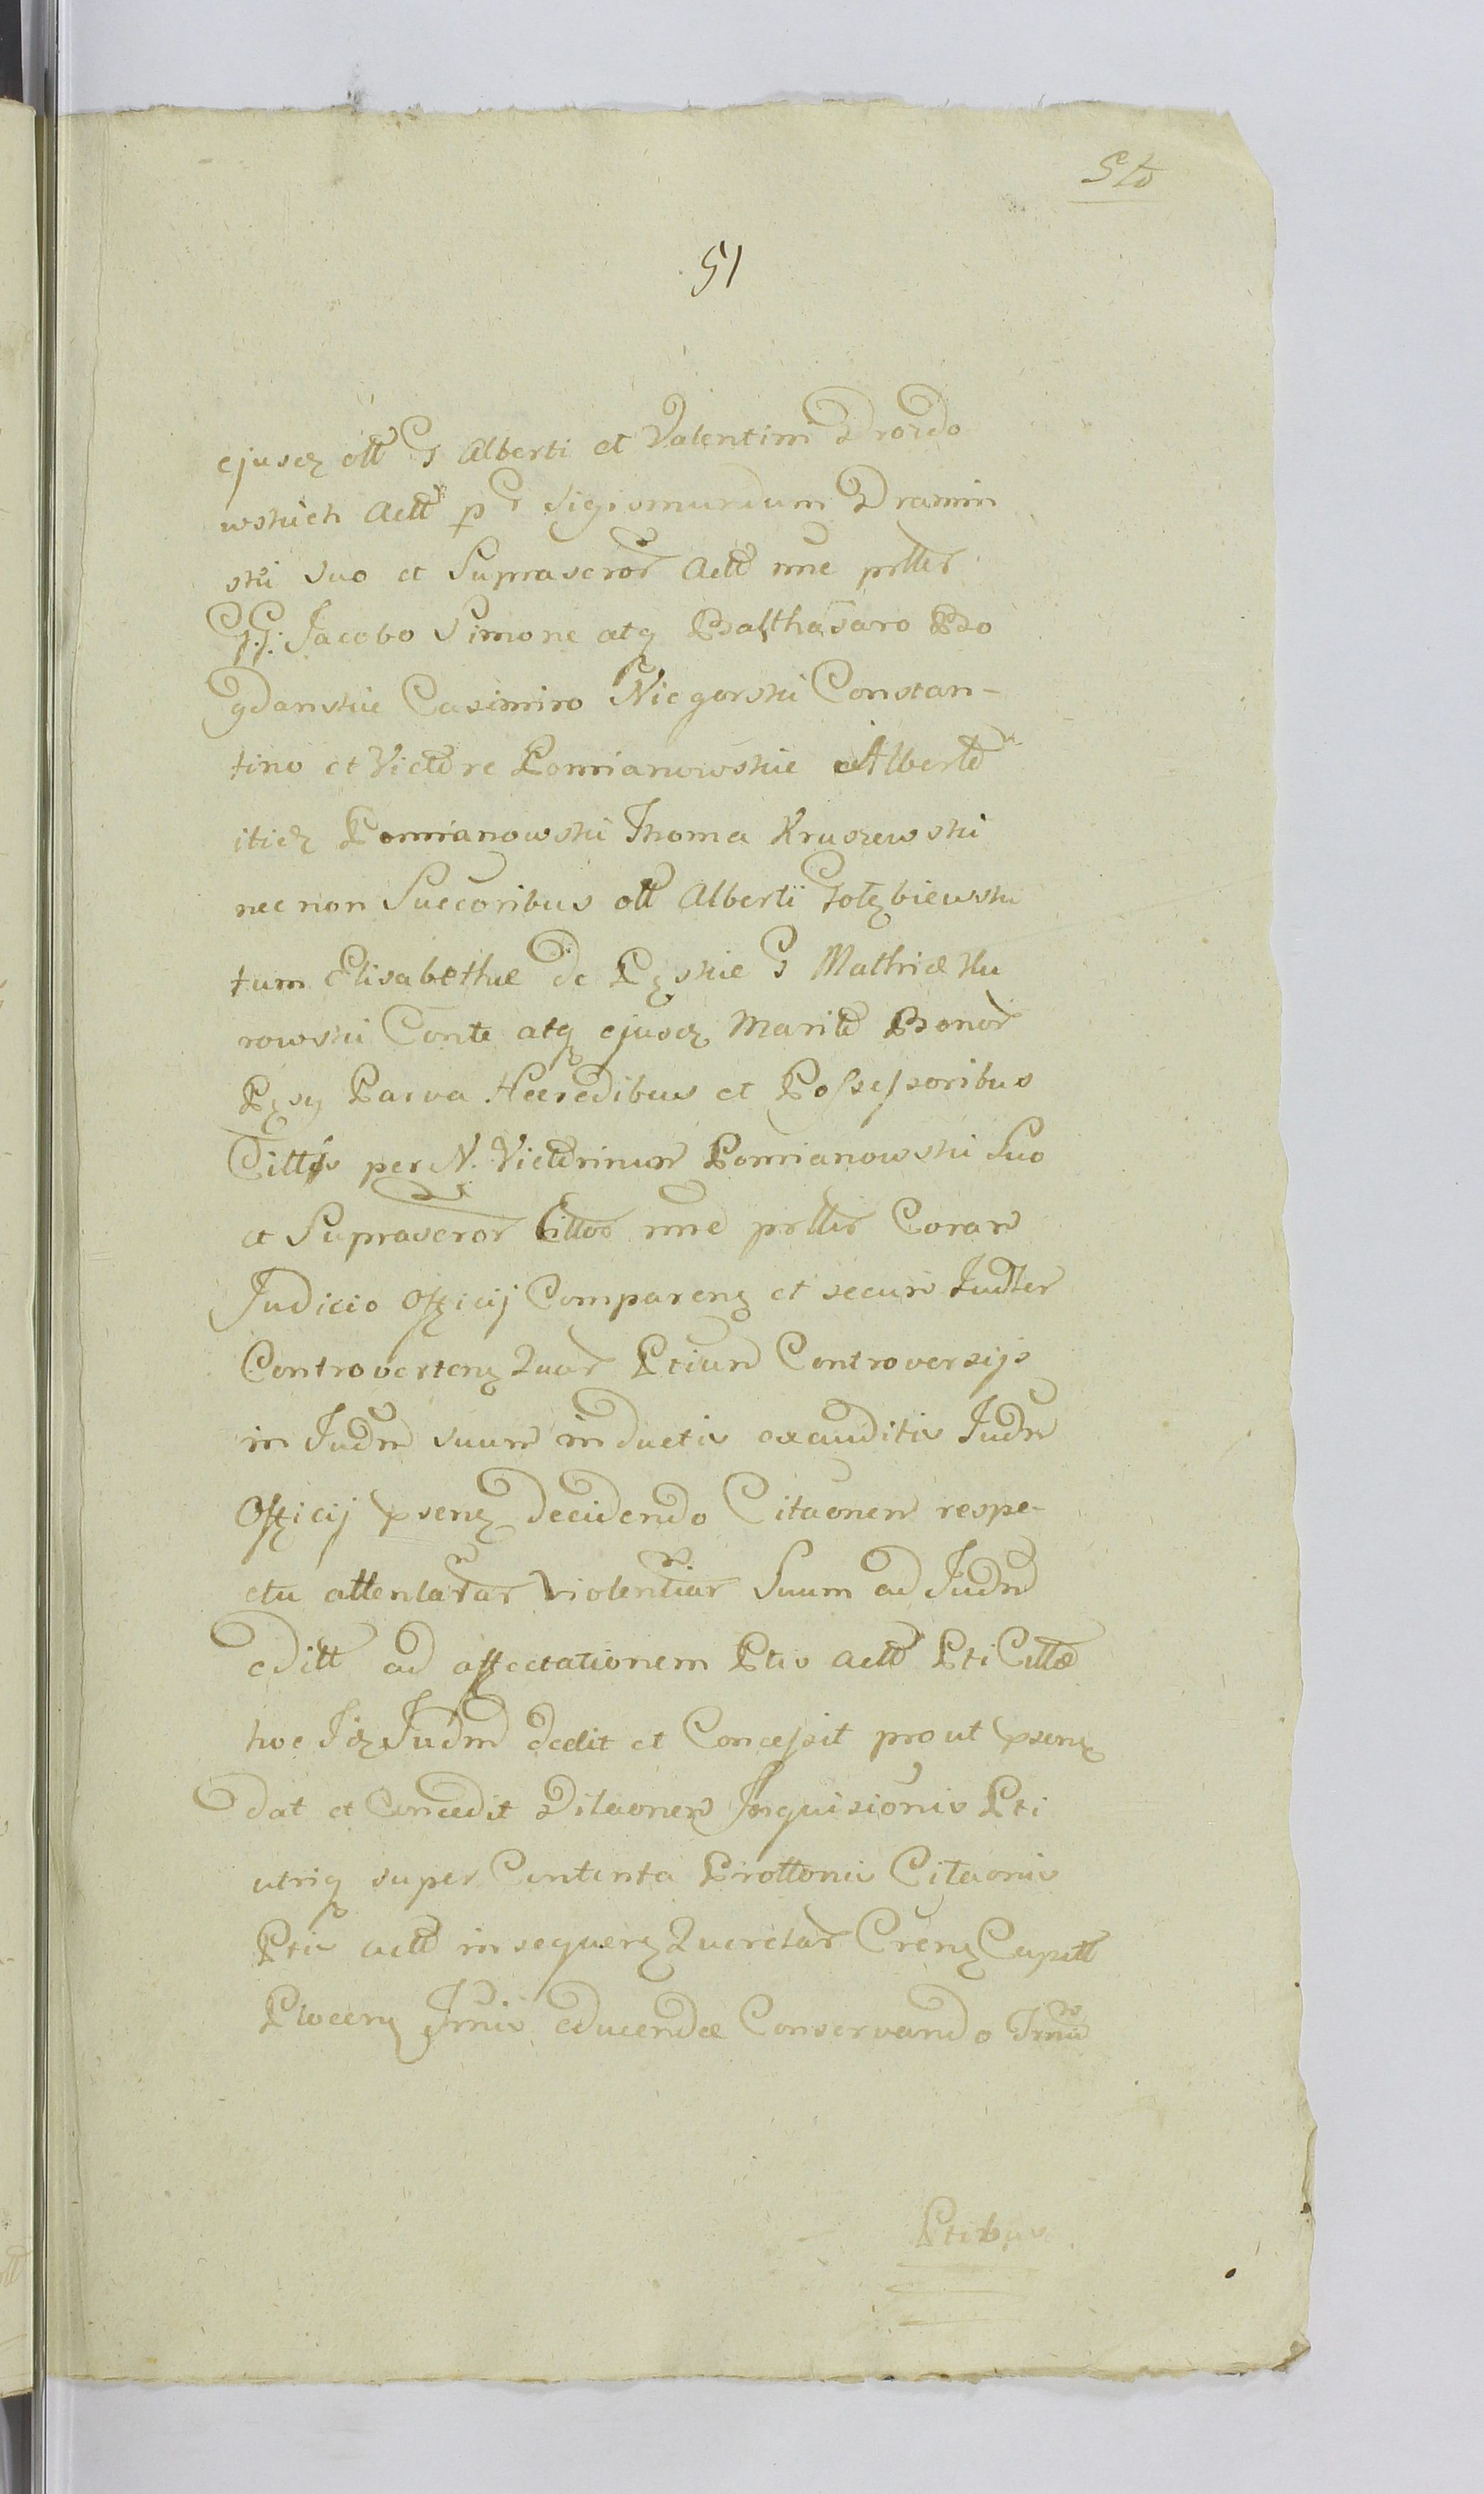 51
ejusdz olt G Alberti et Valentini Drozdo
wskich Actt p G Sigismundum Dramin
ski suo et Suprascror Actt nne prltter
GG: Jacobo Simone atq Balthasaro Bo
gdanskie Casimiro Niegorski Constan-
tino et Victore Pomianowskie Alberto
itidz Pomianowski Thoma Kruszewski
nec non Succoribus olt Alberti Gołębiewski
tum Elisabethæ de Pęskie G Mathiæ Żu
rowski Conte atq ejusdz Marito Bonor
Pęsy Parva Hæredibus et Possessoribus
Cittis per N. Victorinum Pomianowski Suo
et Suprascror Cittor nne prltter Coram
Judicio Officij Comparenz et secum Judlter
Controvertenz Quar Ptium Controversijs
in Judm suum inductis exauditis Judm
Officij psenz decidendo Citaonem respe-
ctu attentatar violentiar Suum ad Judm
editt ad affectationem Ptis Actt Pti Cittæ
hoc Idz Judm dedit et Concessit prout psenz
dat et Concedit Dilaonem Inquisionis Pti
utriq super Contenta Prottonis Citaonis
Ptis Actt in sequenz Queretar Crenz Capitt
Plocenz Trnis educendæ Conservando Trnū
Ptibus